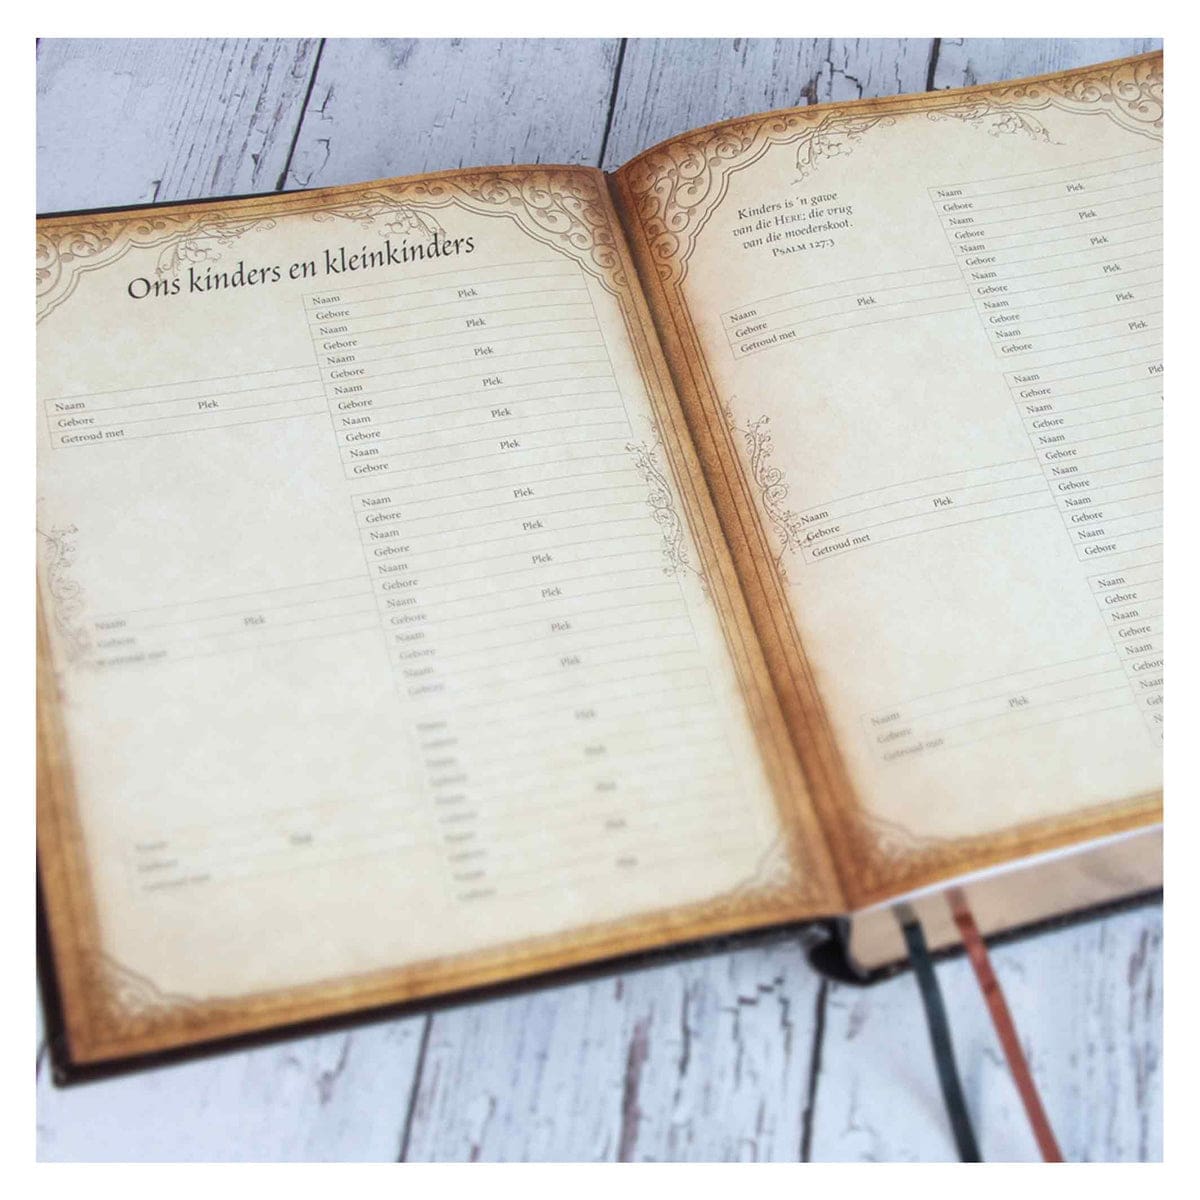 Ons kinders en kleinkinders
Naam Plek
Gebore
Naam Plek
Gebore
Naam Plek
Gebore
Naam Plek
Gebore
Naam Plek
Gebore
Naam Plek
Gebore
Naam Plek
Gebore
Getroud met
Naam Plek
Gebore
Naam Plek
Gebore
Naam Plek
Gebore
Naam Plek
Gebore
Naam Plek
Gebore
Naam Plek
Gebore
Naam Plek
Gebore
Getroud met
Kinders is 'n gawe
van die HERE; die vrug
van die moederskoot.
PSALM 127:3
Naam Plek
Gebore
Getroud met
Naam Plek
Gebore
Naam Plek
Gebore
Naam Plek
Gebore
Naam Plek
Gebore
Naam Plek
Gebore
Naam Plek
Gebore
Naam Plek
Gebore
Getroud met
Naam
Gebore
Naam
Gebore
Naam
Gebore
Naam
Gebore
Naam
Gebore
Naam
Gebore
Naam Plek
Gebore
Getroud met
Naam
Gebore
Naam
Gebore
Naam
Gebore